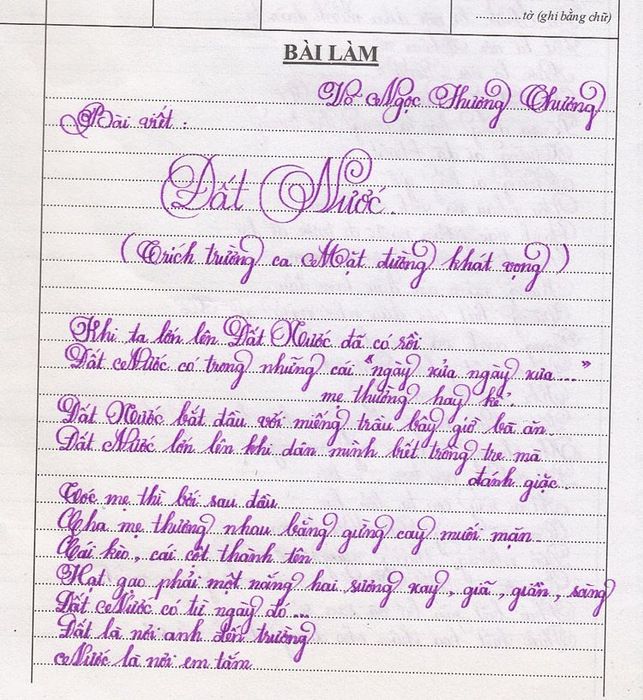 tờ (ghi bằng chữ)
BÀI LÀM
Võ Ngọc Thương Thương
Bài viết :
Đất Nước
(Trích trường ca Mặt đường khát vọng)
Khi ta lớn lên Đất Nước đã có rồi
Đất Nước có trong những cái "ngày xửa ngày xưa..."
mẹ thường hay kể.
Đất Nước bắt đầu với miếng trầu bây giờ bà ăn
Đất Nước lớn lên khi dân mình biết trồng tre mà
đánh giặc
Tóc mẹ thì bới sau đầu
Cha mẹ thương nhau bằng gừng cay muối mặn
Cái kèo, cái cột thành tên
Hạt gạo phải một nắng hai sương xay, giã, giần, sàng
Đất Nước có từ ngày đó...
Đất là nơi anh đến trường
Nước là nơi em tắm